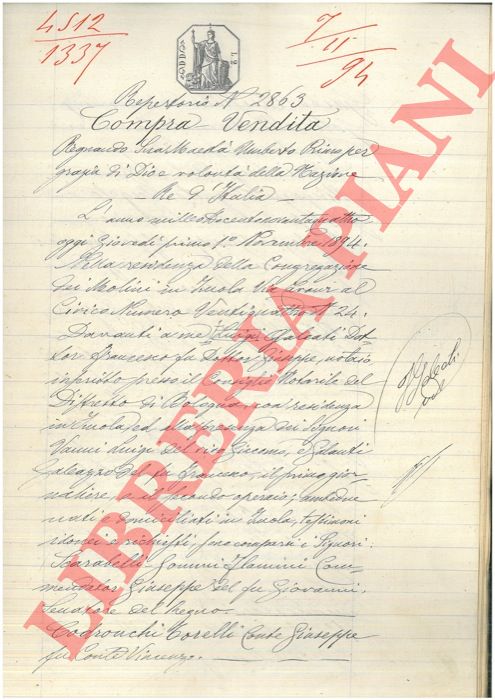 4512
1337
7
11
94
Repertorio N° 2863
Compra-Vendita
Regnando Sua Maestà Umberto Primo per
grazia di Dio e volontà della Nazione
Re d'Italia
L'anno milleottocentonovantaquattro
oggi Giovedì primo 1° Novembre 1894.
Nella residenza della Congregazione
dei Molini in Imola Via Cavour al
Civico Numero Ventiquattro N 24.
Davanti a me Galeati Dot-
tor Francesco fu Dottor Giuseppe, notaio
inscritto presso il Consiglio Notarile del
Distretto di Bologna con residenza
in Imola, ed alla presenza dei Signori
Vanni Luigi del vivo Giacomo, e Galanti
Galeazzo del fu Francesco, il primo gior-
naliere, e il secondo operaio; amendue
nati e domiciliati in Imola, testimoni
idonei e richiesti, sono comparsi i Signori:
Scarabelli Gommi Flamini Com-
mendator Giuseppe del fu Giovanni.
Senatore del Regno.
Codronchi Torelli Conte Giuseppe
fu Conte Vincenzo.
LIBRERIA PIANI